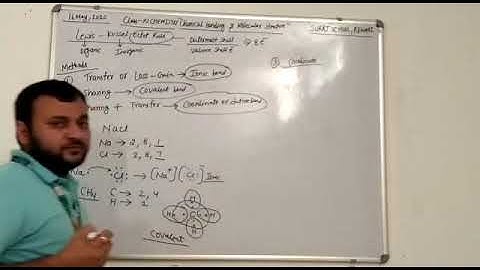 16 May, 2020
Class-XI CHEMISTRY Chemical Bonding & Molecular Structure
Lewis - Kossel, Octet Rule
Outermost Shell
8 e⁻
Organic
Inorganic
Valence Shell
Methods
① Transfer or Loss-Gain → Ionic bond
Sharing → Covalent bond
Sharing + Transfer → Coordinate or dative bond
NaCl
Na → 2, 8, 1
Cl → 2, 8, 7
Na
Cl → [Na⁺] [Cl]⁻ Ionic
CH4
C → 2, 4
H → 1
H
H
C
H
H
Covalent
③ Coordinate